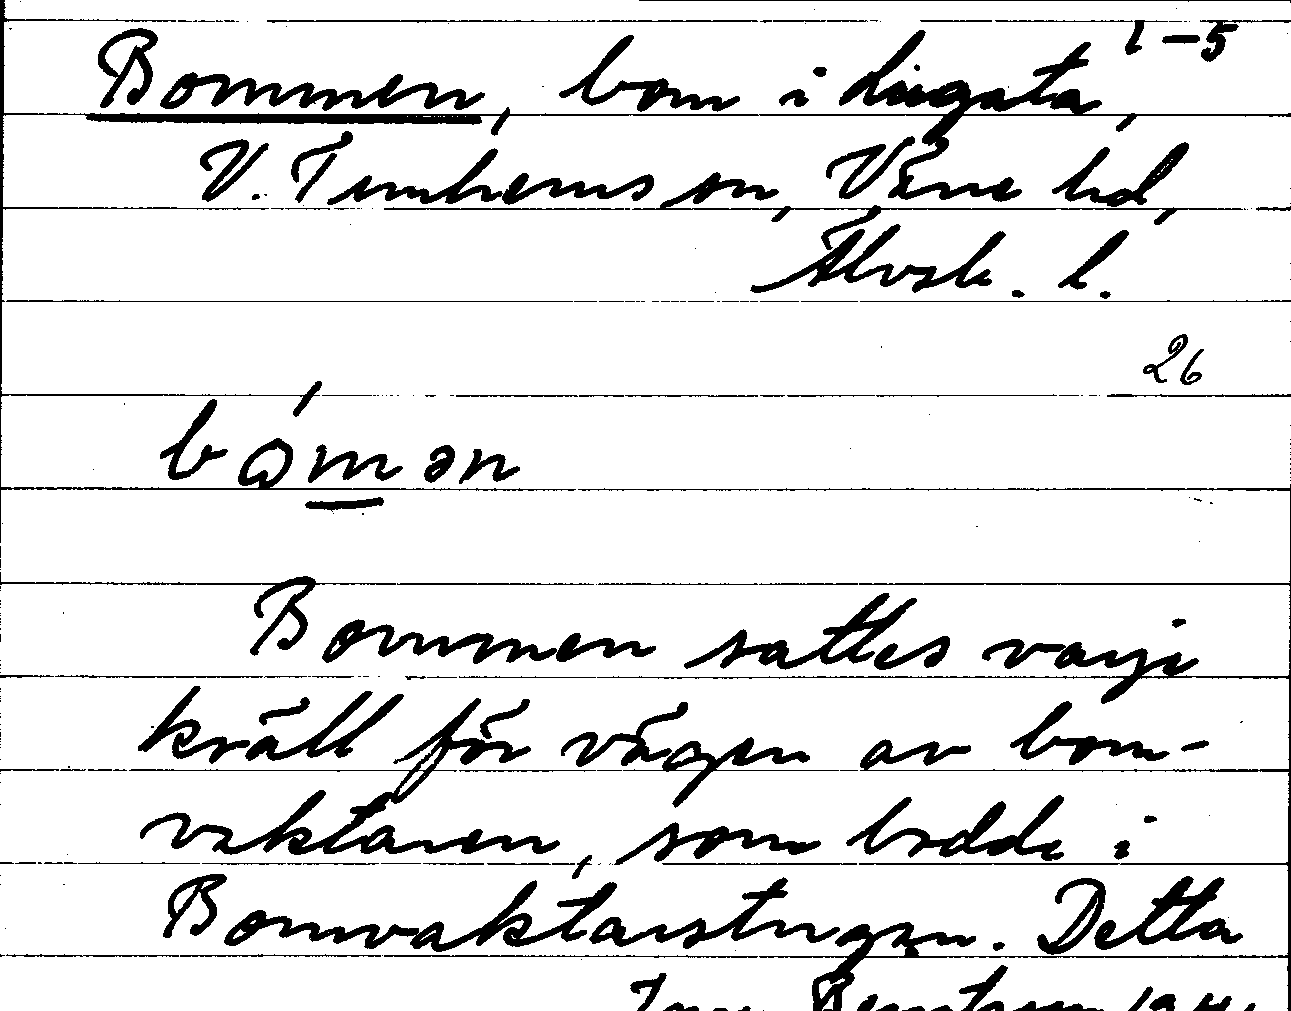 1-5
Bommen, bom i Liegata,
V. Tunhems sn, Väne hd,
Älvsb. l.
26
bómən
Bommen sattes varje
kväll för vägen av bom-
vaktaren, som bodde i
Bomvaktarstugan. Detta